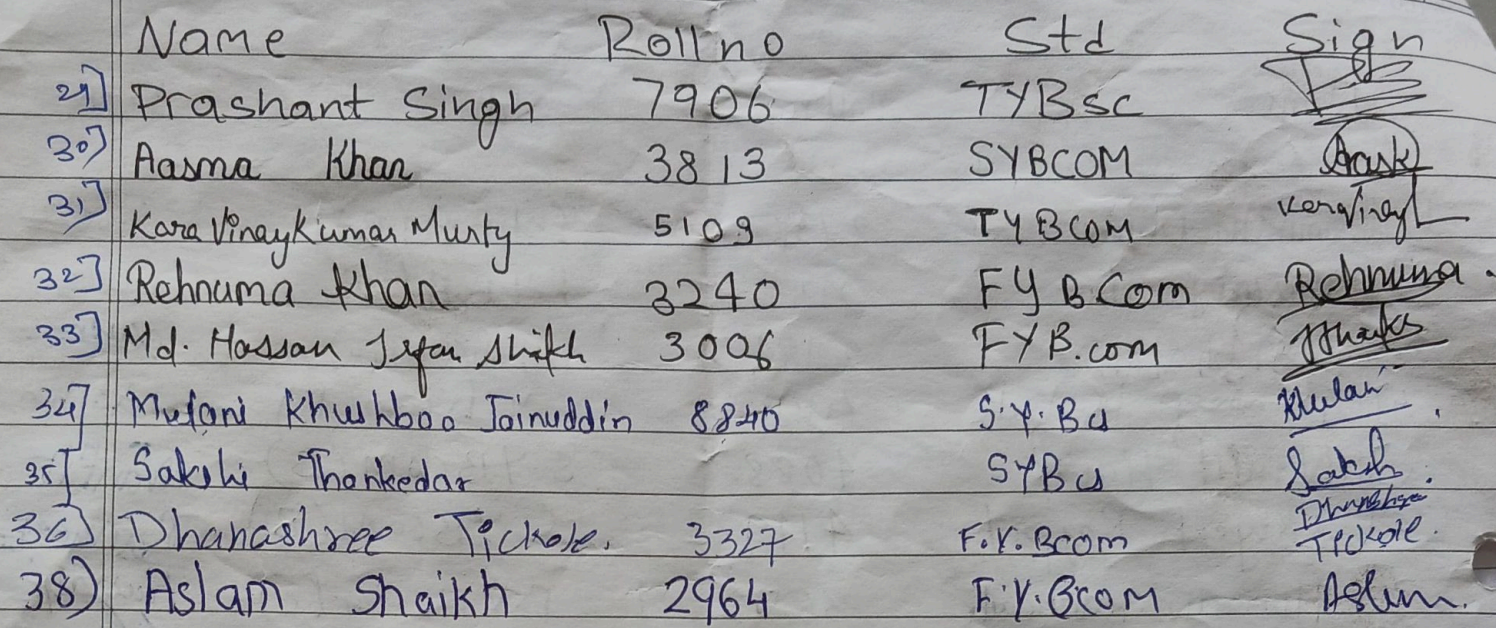 Name Roll no Std Sign
29] Prashant Singh 7906 TYBsc
30] Aasma Khan 3813 SYBCOM Aask
31] Kara Vinaykumar Murty 5109 TYBCOM KaraVinay
32] Rehnuma Khan 3240 FYBCom Rehnuma.
33] Md. Hassan Irfan Shikh 3006 FYB.com
34] Mulani Khushboo Jainuddin 8840 S.Y.Bcs
35] Sakshi Thankedar SYBcs Saksh
36) Dhanashree Tickole. 3327 F.Y.Bcom Dhanashree
Tickole.
38) Aslam Shaikh 2964 F.Y.BCOM Aslam.